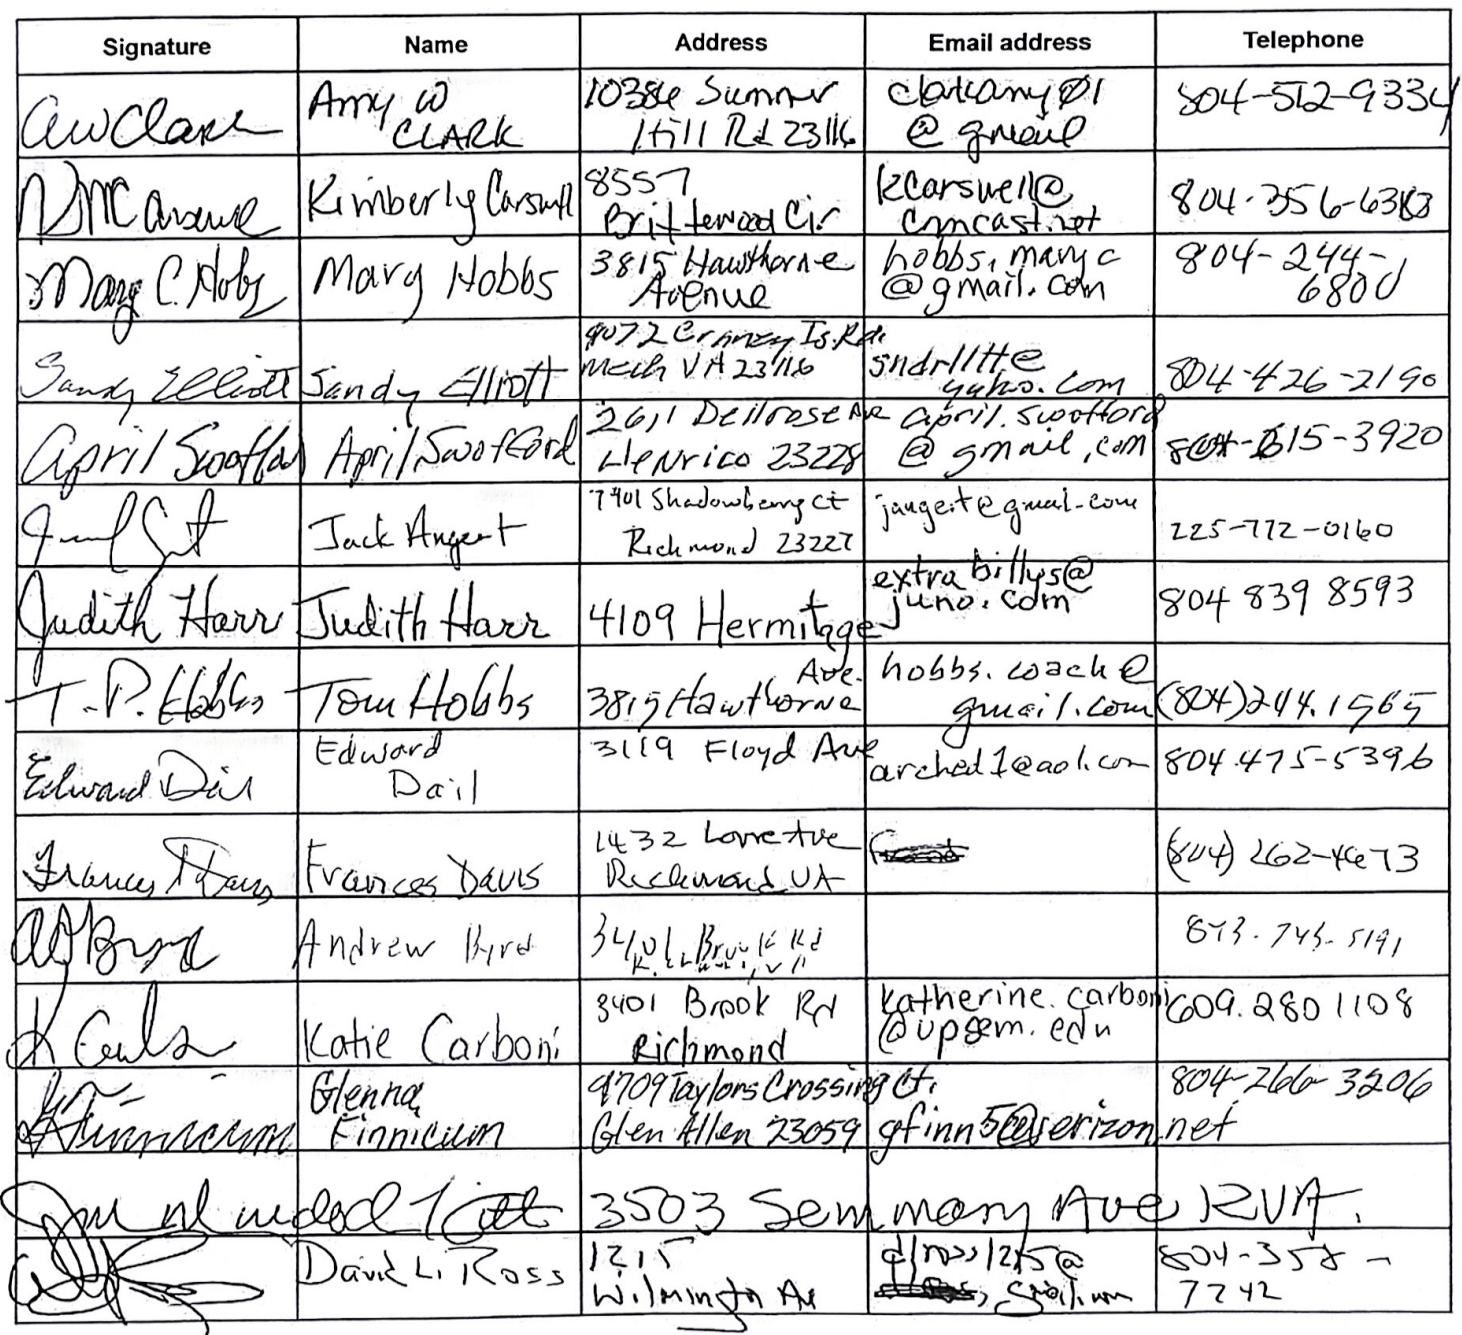 Signature Name Address Email address Telephone
AW Clark Amy W CLARK 10386 Sumner Hill Rd 23116 clarkamy01 @ gmail 804-512-9334
Kimberly Carswell 8557 Brittewood Cir. kcarswell@ comcast.net 804-356-6383
Mary C. Hobbs Mary Hobbs 3815 Hawthorne Avenue hobbs.mary c @gmail.com 804-244-6800
Sandy Elliott Sandy Elliott 9072 Craney Is. Rd. Mech VA 23116 804-426-2190
April Swofford April Swofford 2611 Dellrose Ave Henrico 23228 april.swofford @ gmail.com 615-3920
Jack Angert 7401 Shadowberry Ct Richmond 23227 @gmail.com 225-772-0160
Judith Harr Judith Harr 4109 Hermitage extra billys@ juno.com 804 839 8593
T. P. Hobbs Tom Hobbs 3815 Hawthorne Ave. hobbs.coach@ gmail.com (804)244.1565
Edward Dail Edward Dail 3119 Floyd Ave arched1@aol.com 804.475-5396
Frances Davis Frances Davis 1432 Ave Richmond VA (804) 262-4673
Andrew Byrd 3401 Brook Rd 843-743-5191
Katie Carboni 3401 Brook Rd Richmond katherine.carboni @upsem.edu 609.280 1108
Finnicum Glenna Finnicum 9709 Taylors Crossing Ct. Glen Allen 23059 gfinn5@verizon.net 804-266-3206
3503 Seminary Ave RVA.
David L. Ross 1215 Wilmington Av 804-358-7242